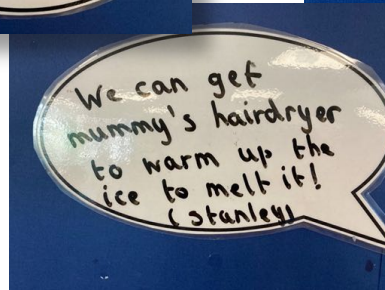 We can get
mummy's hairdryer
to warm up the
ice to melt it!
(stanley)